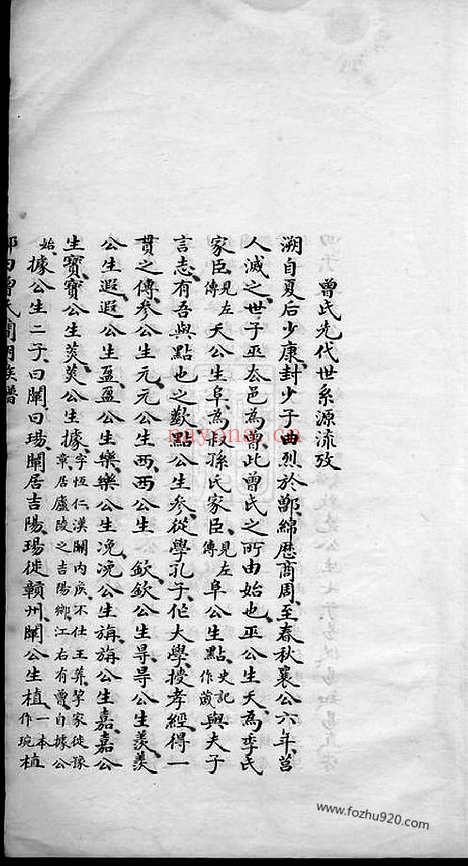 曾氏先代世系源流攷
溯自夏后少康封少子曲烈於鄫綿歷商周至春秋襄公六年莒
人滅之世子巫去邑為曾此曾氏之所由始也巫公生夭為季氏
家臣見左傳夭公生阜為叔孫氏家臣見左傳阜公生點史記作蒧與夫子
言志有吾與點也之歎點公生參從學孔子作大學授孝經得一
貫之傳參公生元元公生西西公生欽欽公生㝷㝷公生羨羨
公生遐遐公生盈盈公生樂樂公生浼浼公生旃旃公生嘉嘉公
生寶寶公生炎炎公生據字恆仁漢關內侯不仕王莽挈家徙豫章居廬陵之吉陽鄉江右有曾自據公始
據公生二子曰闡曰瑒闡居吉陽瑒徙贛州闡公生植一本作琬植
曾氏
族譜
www.fozhu920.com